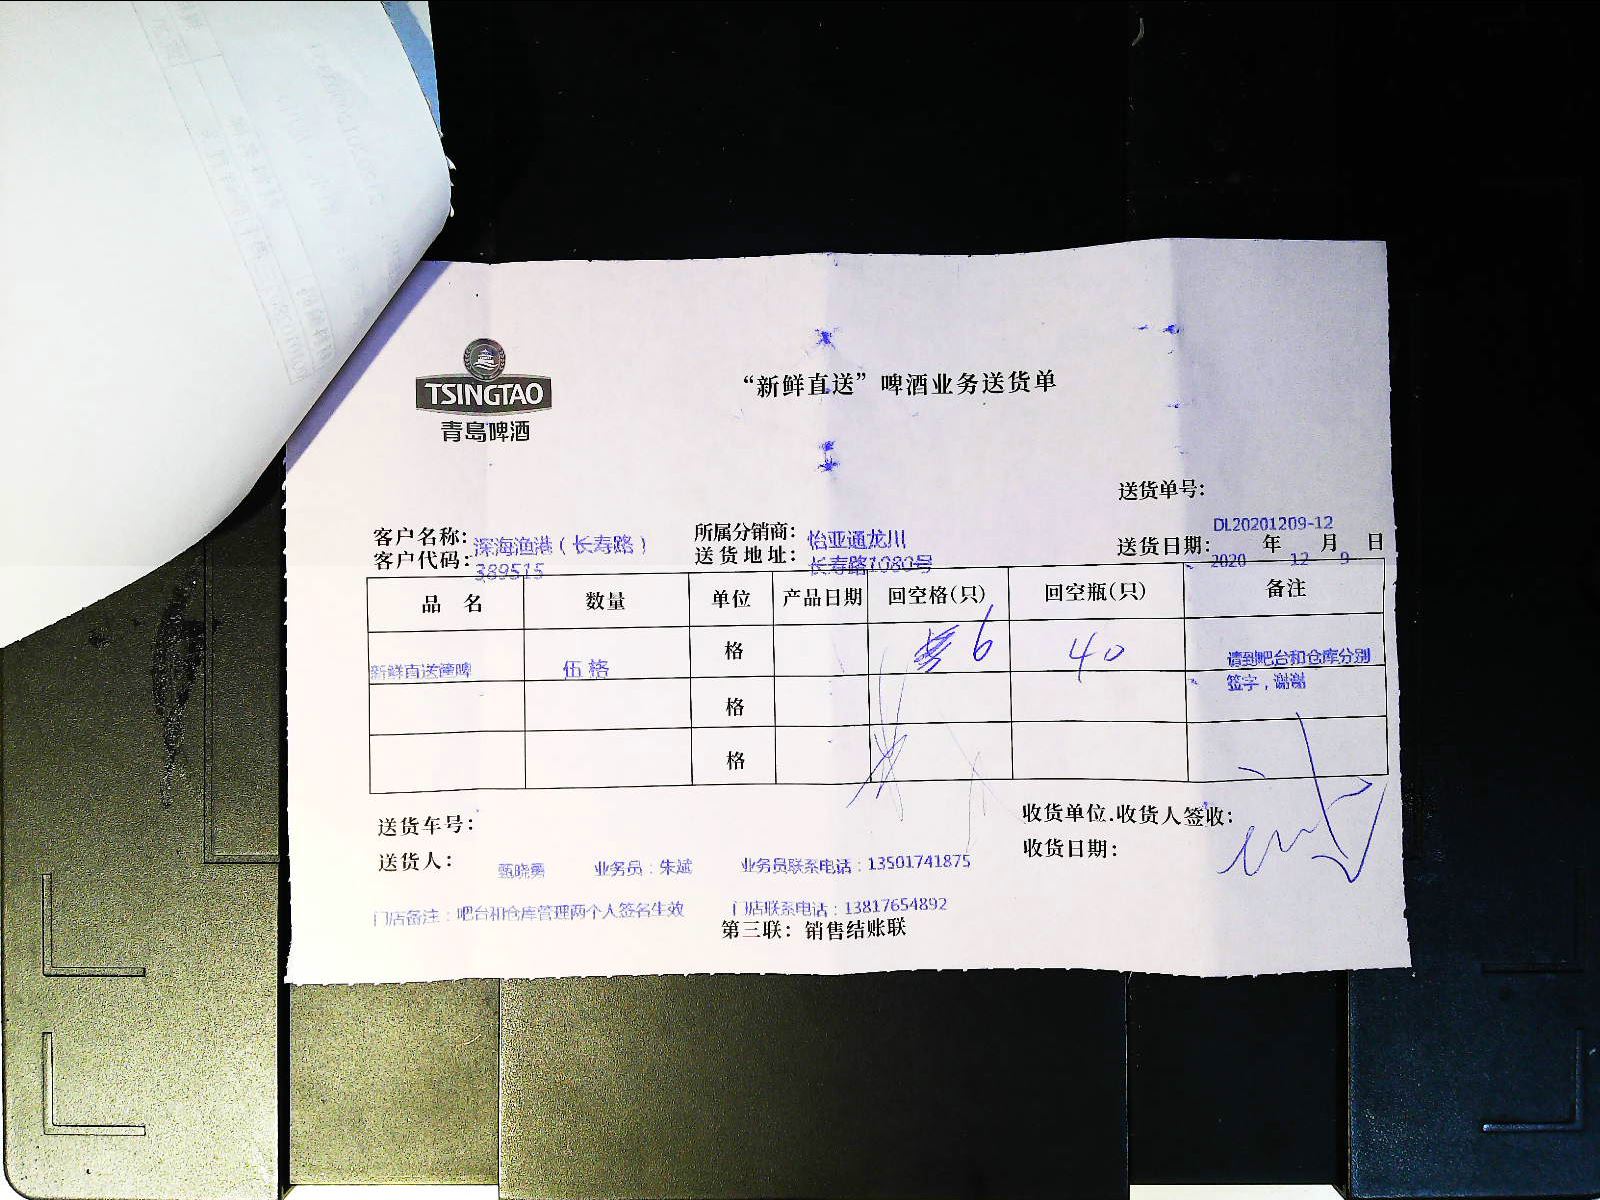 TSINGTAO
青島啤酒
“新鲜直送”啤酒业务送货单
送货单号：
DL20201209-12
客户名称：深海渔港（长寿路） 所属分销商：怡亚通龙川 送货日期：2020 年 12 月 9 日
客户代码：389515 送货地址：长寿路1080号
品 名 数量 单位 产品日期 回空格(只) 回空瓶(只) 备注
新鲜直送 伍格 格 6 40 请到吧台和仓库分别签字，谢谢
格
格
送货车号： 收货单位.收货人签收：
送货人：甄晓勇 业务员：朱斌 业务员联系电话：13501741875 收货日期：
门店备注：吧台和仓库管理两个人签名生效 门店联系电话：13817654892
第三联：销售结账联